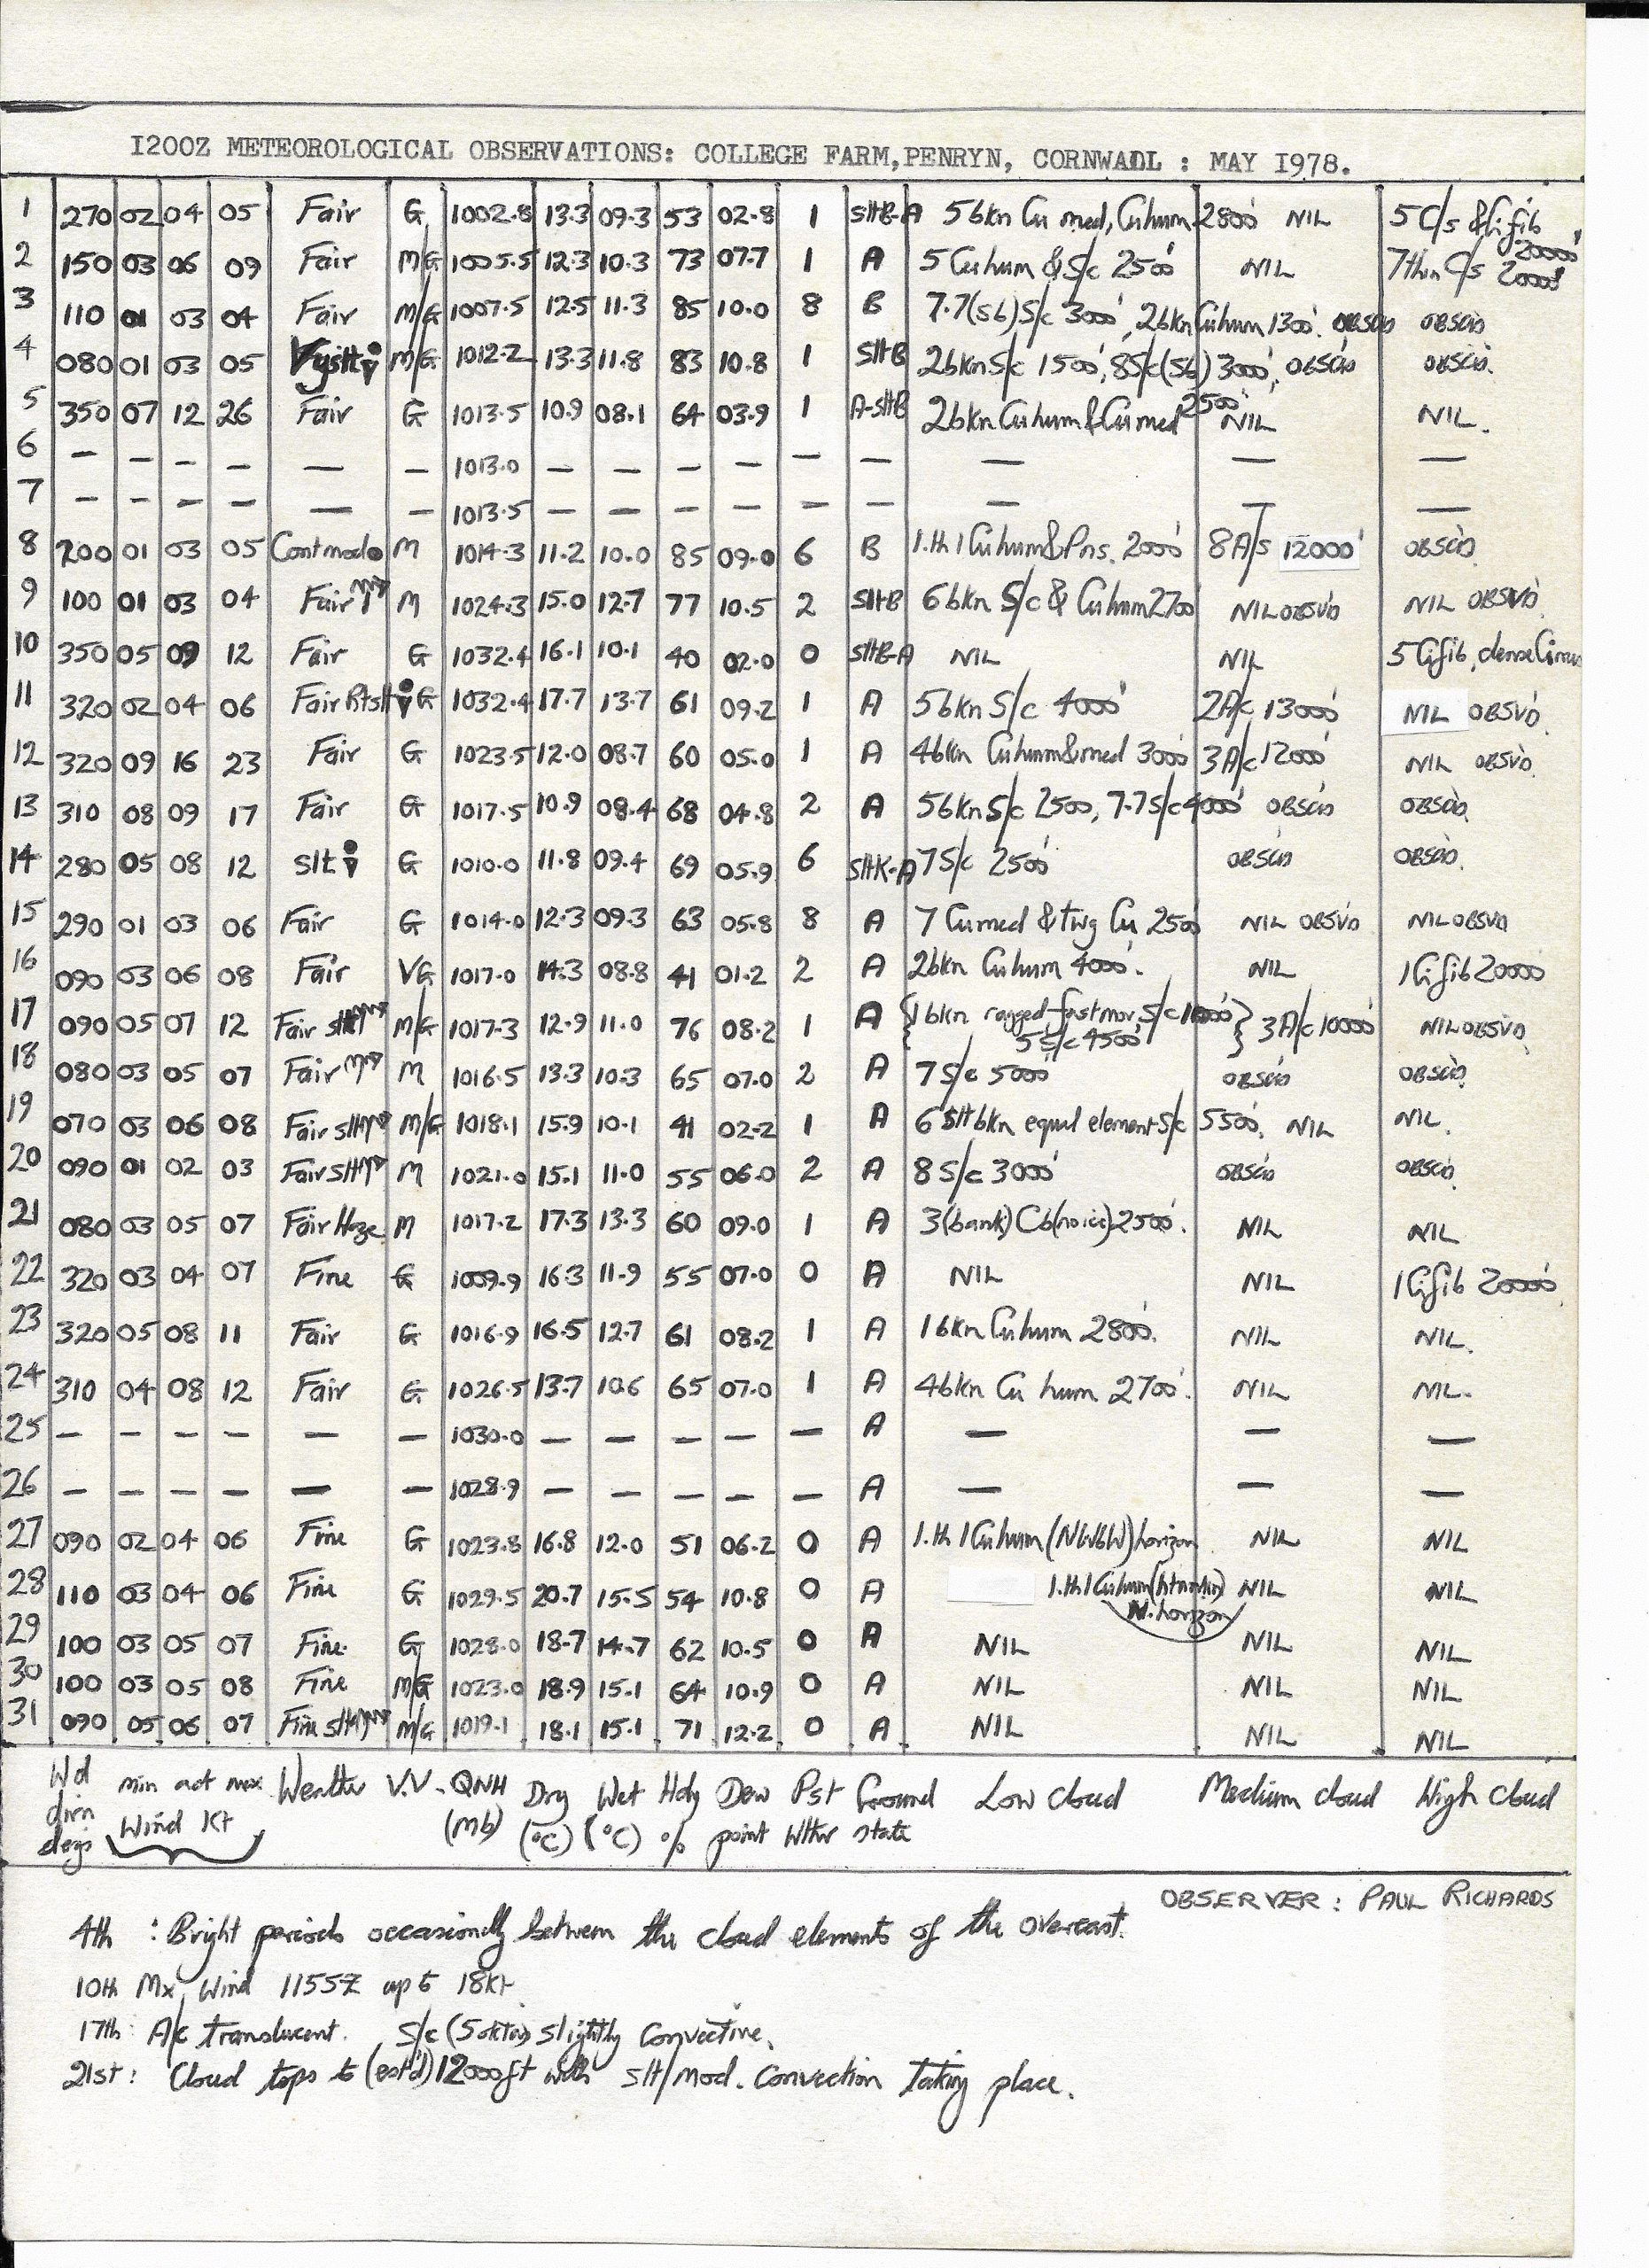 I200Z METEOROLOGICAL OBSERVATIONS: COLLEGE FARM,PENRYN, CORNWADL : MAY I978.
1 270 02 04 05 Fair G 1002.8 13.3 09.3 53 02.8 1 SltB-A 5bkn Cu med, Cuhum 2800' NIL 5 C/s & Cifib 20000'
2 150 03 06 09 Fair M/G 1005.5 12.3 10.3 73 07.7 1 A 5 Cuhum & S/c 2500' NIL 7 thin C/s 20000'
3 110 01 03 04 Fair M/G 1007.5 12.5 11.3 85 10.0 8 B 7.7(sb)S/c 3000', 2bkn Cuhum 1300'. OBSCD OBSCD
4 080 01 03 05 Vyslt M/G 1012.2 13.3 11.8 83 10.8 1 SltB 2bkn S/c 1500', 8S/c(Sb) 3000', OBSCD OBSCD.
5 350 07 12 26 Fair G 1013.5 10.9 08.1 64 03.9 1 A-sltB 2bkn Cuhum & Cumed 2500' NIL NIL.
6 — — — — — — 1013.0 — — — — — — — — —
7 — — — — — — 1013.5 — — — — — — — — —
8 200 01 03 05 Cont mod M 1014.3 11.2 10.0 85 09.0 6 B 1.th 1 Cuhum & Pns. 2000' 8 A/s 12000' OBSCD.
9 100 01 03 04 Fair M 1024.3 15.0 12.7 77 10.5 2 SltB 6bkn S/c & Cuhum 2700' NIL OBSVD NIL OBSVD.
10 350 05 09 12 Fair G 1032.4 16.1 10.1 40 02.0 0 SltB-A NIL NIL 5 Cifib, dense Cirrus
11 320 02 04 06 Fair Rtslt G 1032.4 17.7 13.7 61 09.2 1 A 5bkn S/c 4000' 2A/c 13000' NIL OBSVD.
12 320 09 16 23 Fair G 1023.5 12.0 08.7 60 05.0 1 A 4bkn Cuhum & med 3000' 3A/c 12000' NIL OBSVD.
13 310 08 09 17 Fair G 1017.5 10.9 08.4 68 04.8 2 A 5bkn S/c 2500, 7.7S/c 4000' OBSCD OBSCD.
14 280 05 08 12 Slt G 1010.0 11.8 09.4 69 05.9 6 SltK-A 7 S/c 2500' OBSCD OBSCD.
15 290 01 03 06 Fair G 1014.0 12.3 09.3 63 05.8 8 A 7 Cumed & twg Cu 2500' NIL OBSVD NIL OBSVD
16 090 03 06 08 Fair VG 1017.0 14.3 08.8 41 01.2 2 A 2bkn Cuhum 4000'. NIL 1 Cifib 20000
17 090 05 07 12 Fair slt M/G 1017.3 12.9 11.0 76 08.2 1 A {1bkn ragged fastmov. S/c 1000' 5 S/c 4500'} 3 A/c 10000' NIL OBSVD
18 080 03 05 07 Fair M 1016.5 13.3 10.3 65 07.0 2 A 7 S/c 5000' OBSCD OBSCD.
19 070 03 06 08 Fair slt M/G 1018.1 15.9 10.1 41 02.2 1 A 6 Slt bkn equal element S/c 5500'. NIL NIL.
20 090 01 02 03 Fair Slt M 1021.0 15.1 11.0 55 06.0 2 A 8 S/c 3000' OBSCD OBSCD.
21 080 03 05 07 Fair Haze M 1017.2 17.3 13.3 60 09.0 1 A 3(bank) Cb(no ice) 2500'. NIL NIL
22 320 03 04 07 Fine G 1009.9 16.3 11.9 55 07.0 0 A NIL NIL 1 Cifib 20000'
23 320 05 08 11 Fair G 1016.9 16.5 12.7 61 08.2 1 A 1bkn Cuhum 2800'. NIL NIL.
24 310 04 08 12 Fair G 1026.5 13.7 10.6 65 07.0 1 A 4bkn Cu hum 2700'. NIL NIL.
25 — — — — — — 1030.0 — — — — — A — — —
26 — — — — — — 1028.9 — — — — — A — — —
27 090 02 04 06 Fine G 1023.8 16.8 12.0 51 06.2 0 A 1.th 1 Cuhum (NWbW) horizon NIL NIL
28 110 03 04 06 Fine G 1029.5 20.7 15.5 54 10.8 0 A 1.th 1 Cuhum N.horizon NIL NIL
29 100 03 05 07 Fine G 1028.0 18.7 14.7 62 10.5 0 A NIL NIL NIL
30 100 03 05 08 Fine M/G 1023.0 18.9 15.1 64 10.9 0 A NIL NIL NIL
31 090 05 06 07 Fine slt M/G 1019.1 18.1 15.1 71 12.2 0 A NIL NIL NIL
Wd dirn degs min act max Wind Kt Weather V.V. QNH (mb) Dry (°C) Wet (°C) Hdy % Dew point Pst Wthr Ground state Low cloud Medium cloud High cloud
OBSERVER : PAUL RICHARDS
4th : Bright periods occasionally between the cloud elements of the overcast.
10th Mx. Wind 1155Z up to 18kt.
17th: A/c translucent. S/c (5 oktas) slightly convective.
21st: Cloud tops to (est'd) 12000ft with slt/mod. convection taking place.